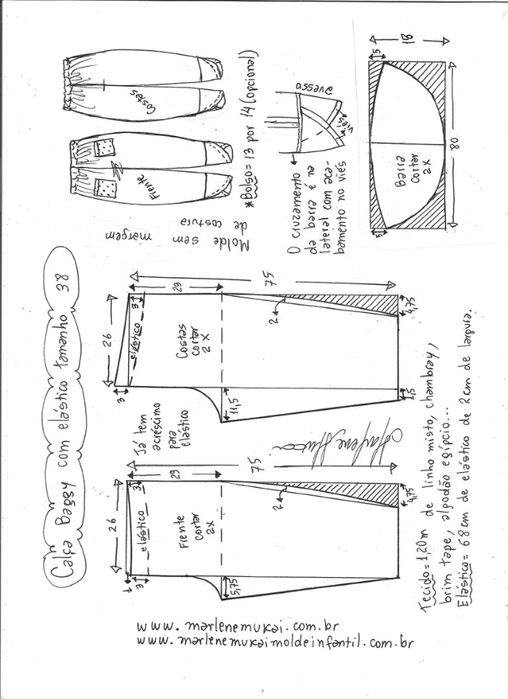 Calça Baggy com elástico tamanho 38
Molde sem margem
de costura
Costas
Frente
*Bolso = 13 por 14 (opcional)
avesso
viés
O cruzamento
da barra é na
lateral com aca-
bamento no viés
18
5
80
Barra
cortar
2x
3
75
29
26
3
3
elástico
Costas
cortar
2x
2
4,75
11,5
1,5
Já tem
acréscimo
para
elástico
75
29
26
3
1
3
elástico
Frente
cortar
2x
2
4,75
5,75
Tecido = 1,20m de linho misto, chambray,
brim tape, algodão egípcio...
Elástico = 68cm de elástico de 2cm de largura.
www.marlenemukai.com.br
www.marlenemukaimoldeinfantil.com.br